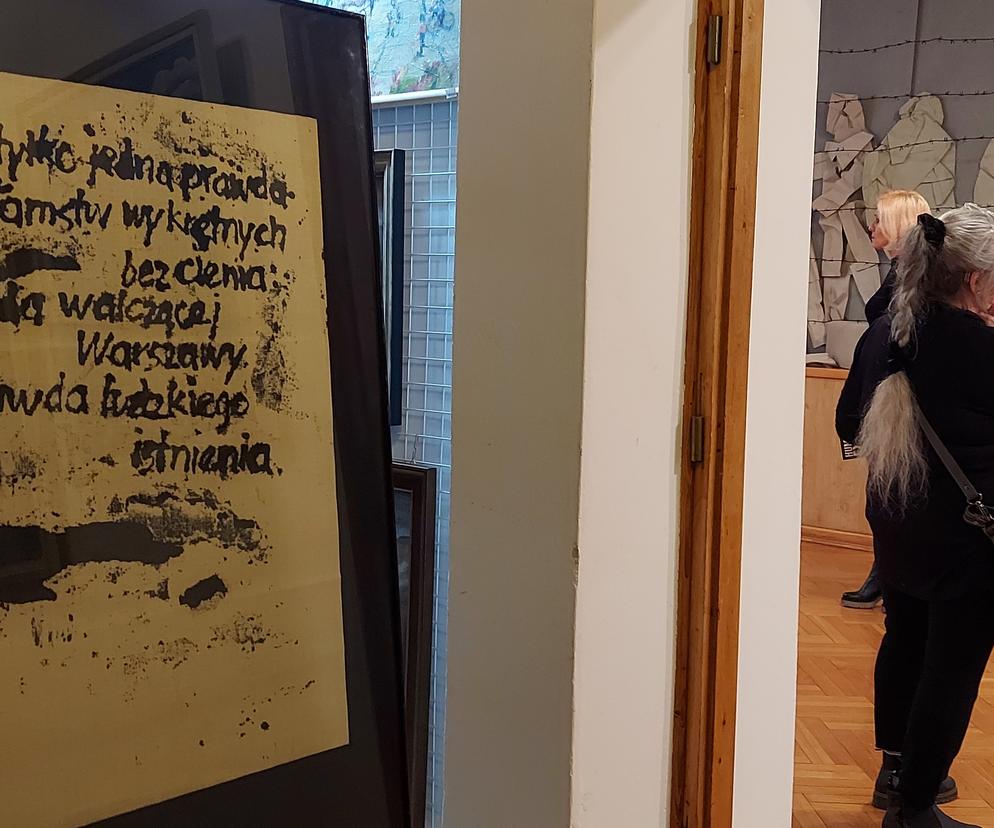 tylko jedna prawda
amstw wykrętnych
bez cienia:
da walczącej
Warszawy
wda ludzkiego
istnienia.